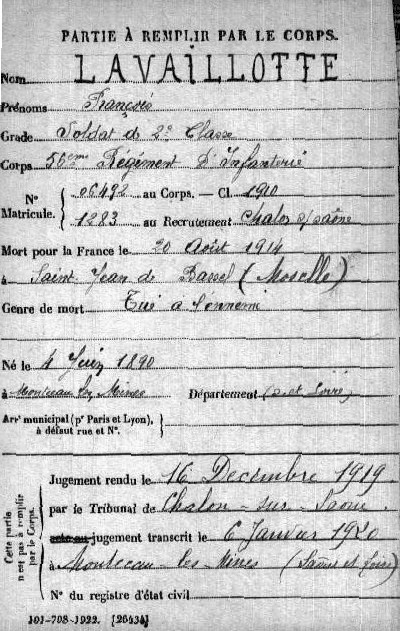 PARTIE À REMPLIR PAR LE CORPS.
Nom LAVAILLOTTE
Prénoms François
Grade Soldat de 2e Classe
Corps 56ème Régiment D'Infanterie
N° Matricule. 06492 au Corps. — Cl. 1910
1283 au Recrutement Chalon s/saône
Mort pour la France le 20 Août 1914
à Saint Jean de Bassel (Moselle)
Genre de mort Tué a l'ennemi
Né le 4 Juin 1890
à Montceau les Mines Département (S. et Loire)
Arrt municipal (pr Paris et Lyon),
à défaut rue et N°.
Cette partie n'est pas à remplir par le Corps.
Jugement rendu le 16 Décembre 1919
par le Tribunal de Chalon-sur-Saone.
acte ou jugement transcrit le 6 Janvier 1920
à Montceau-les-Mines (Saône et Loire)
N° du registre d'état civil
101-708-1922. [26434]